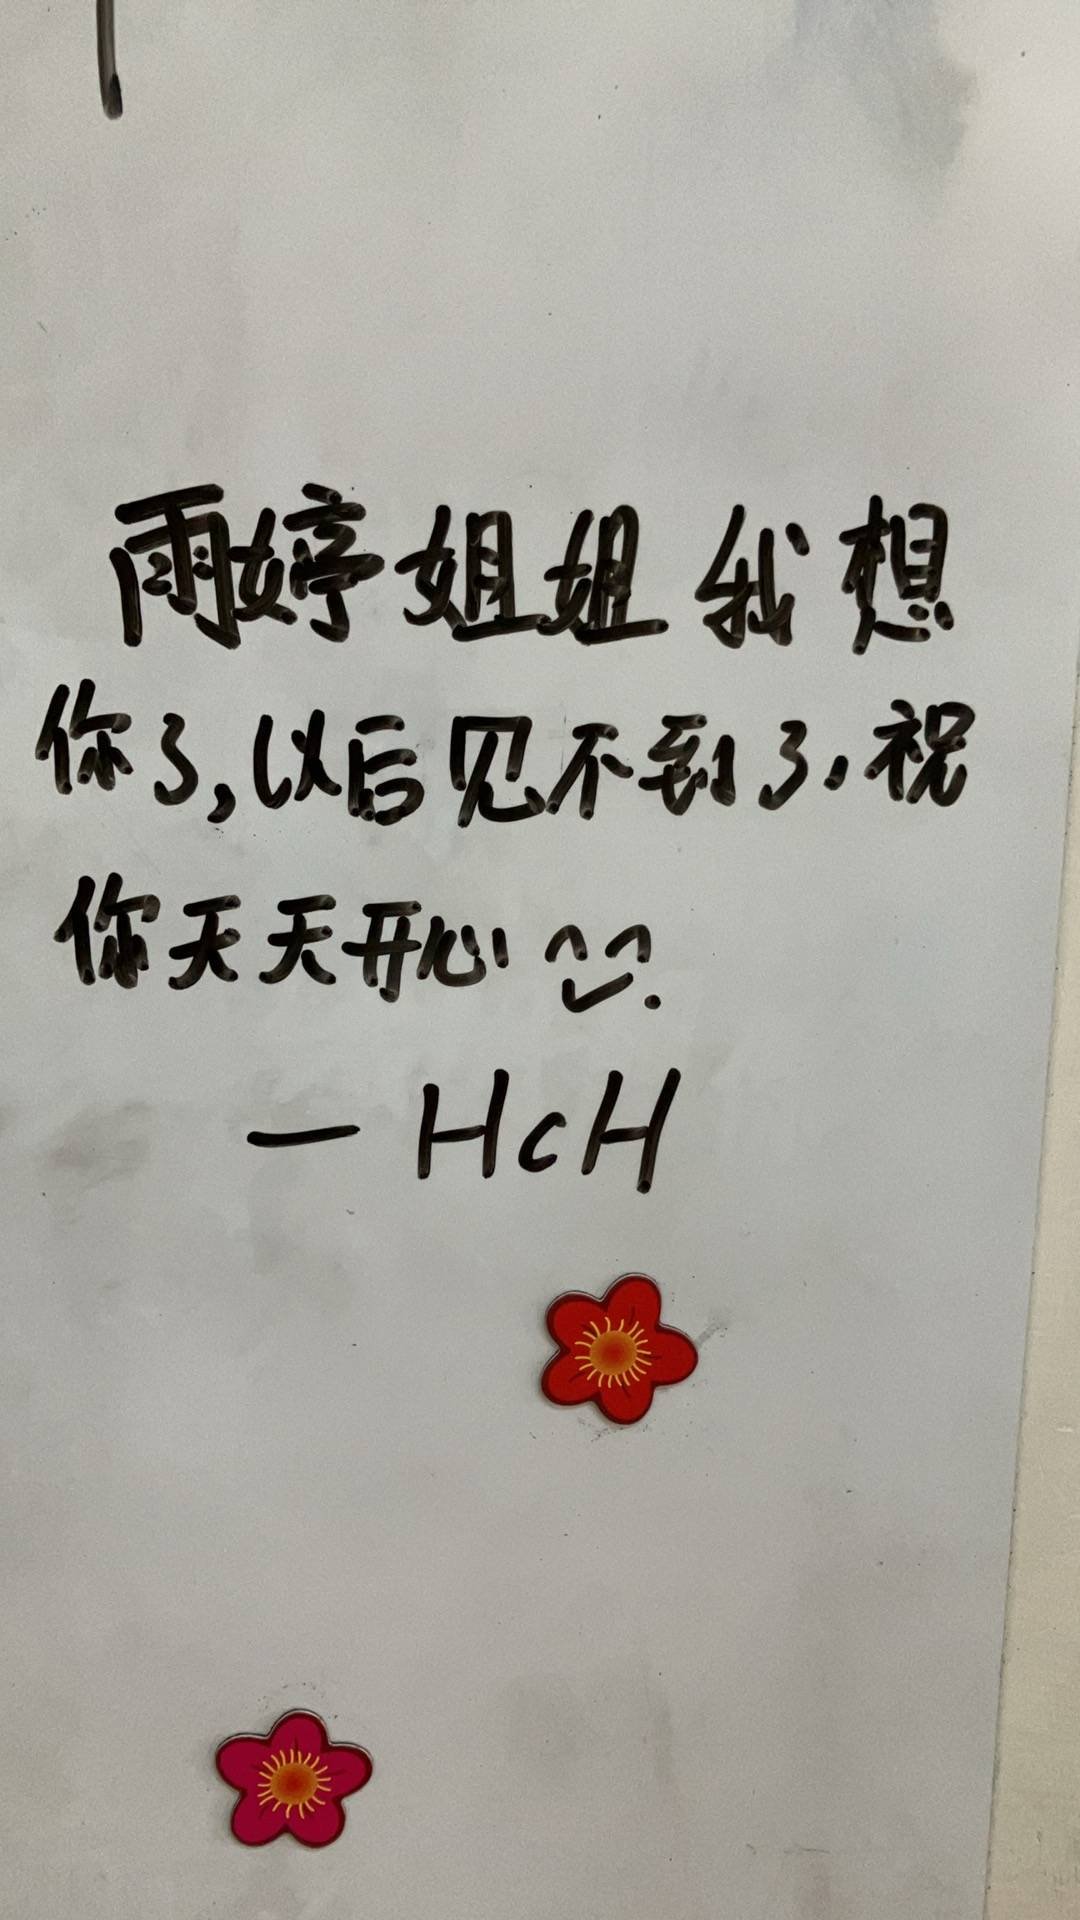 雨婷姐姐我想
你了,以后见不到了,祝
你天天开心 ^‿^.
— HcH